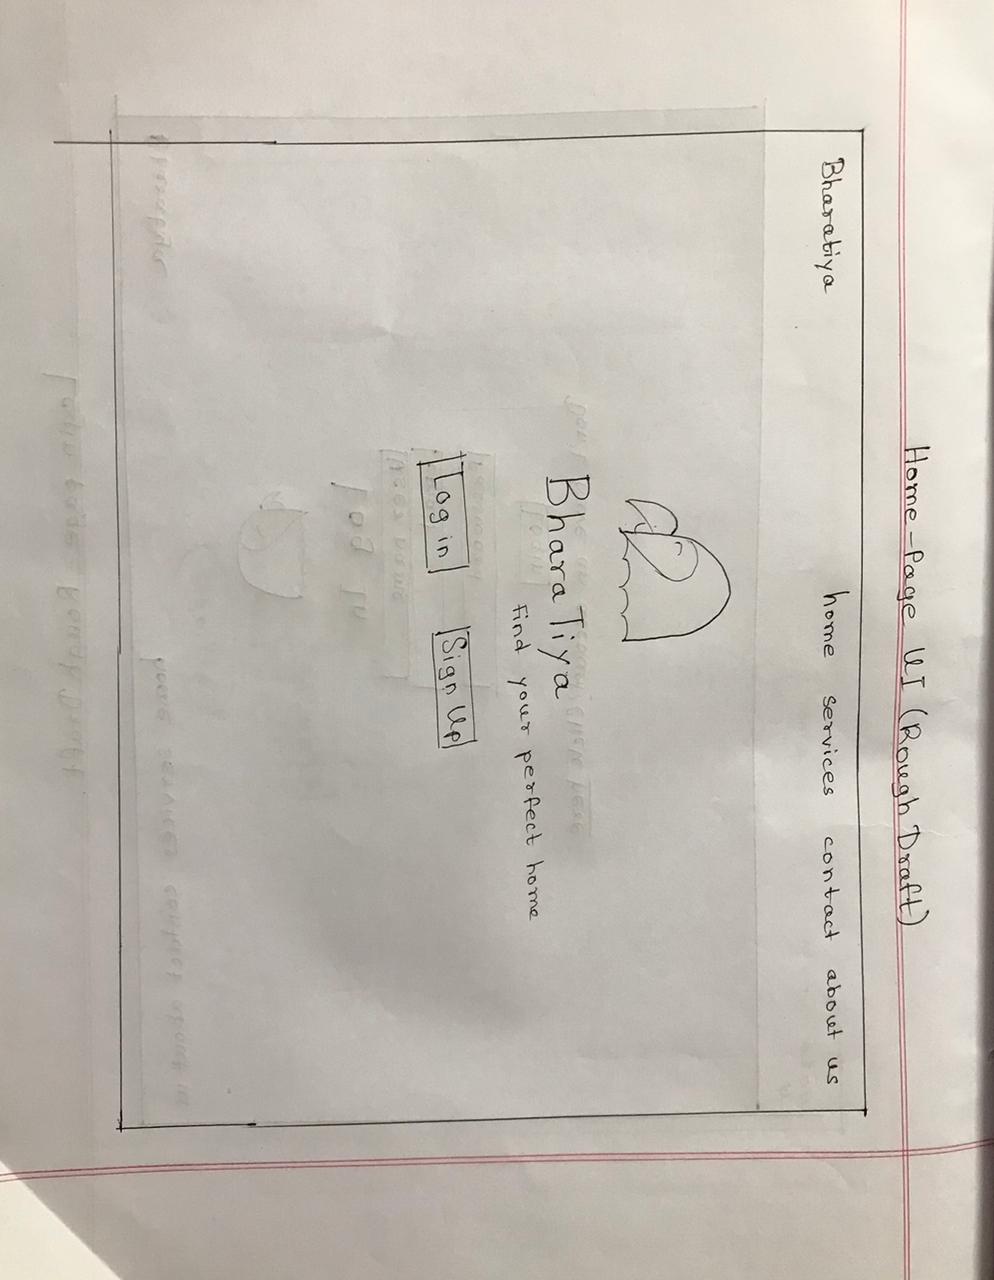 Home-Page UI (Rough Draft)
Bharatiya home services contact about us
BharaTiya
Find your perfect home
Log in Sign Up